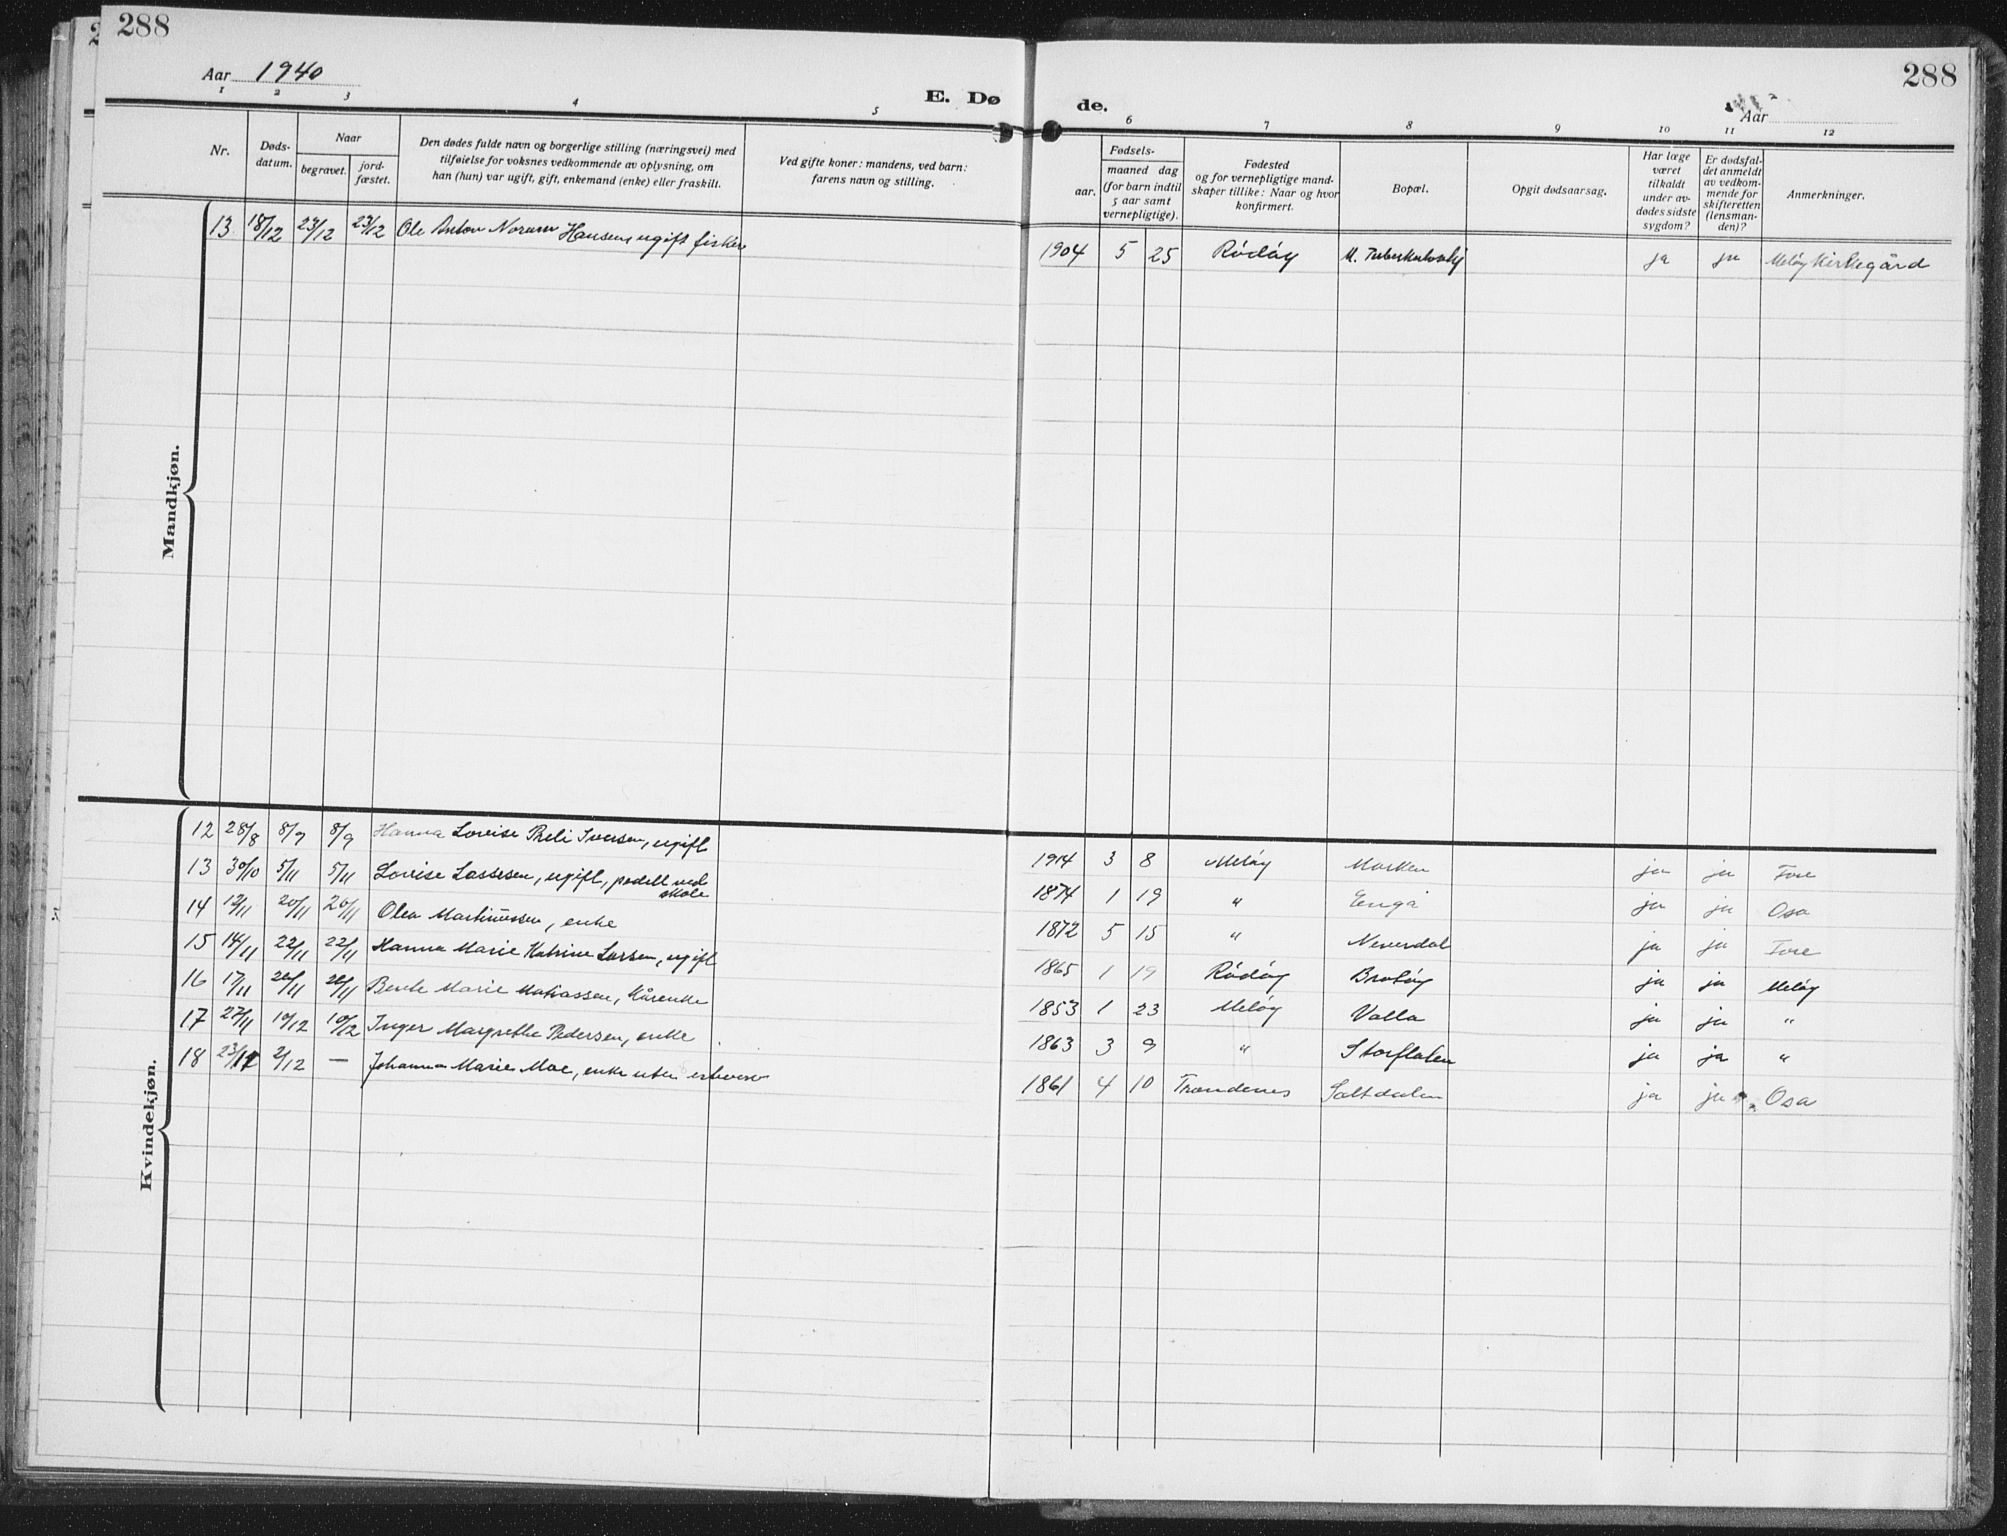 288
Aar 1940
E. Dø de.
Aar
288
1 2 3 4 5 6 7 8 9 10 11 12
Nr.
Døds-
datum.
Naar
begravet.
jord-
fæstet.
Den dødes fulde navn og borgerlige stilling (næringsvei) med
tilføielse for voksnes vedkommende av oplysning, om
han (hun) var ugift, gift, enkemand (enke) eller fraskilt.
Ved gifte koner: mandens, ved barn:
farens navn og stilling.
Fødsels-
aar.
maaned dag
(for barn indtil
5 aar samt
vernepligtige).
Fødested
og for vernepligtige mand-
skaper tillike: Naar og hvor
konfirmert.
Bopæl.
Opgit dødsaarsag.
Har læge
været
tilkaldt
under av-
dødes sidste
sygdom?
Er dødsfal-
det anmeldt
av vedkom-
mende for
skifteretten
(lensman-
den)?
Anmerkninger.
Mandkjøn.
13 18/12 23/12 23/12 Ole Anton Norum Hansen, ugift fisker 1904 5 25 Rødøy M. Tuberkulosehj ja ja Meløy Kirkegård
Kvindekjøn.
12 28/8 8/9 8/9 Hanna Lovise Iversen, ugift 1914 3 8 Meløy Marken ja ja Fore
13 30/10 5/11 5/11 Lovise Lassesen, ugift, pedell ved skole 1874 1 19 " Engå ja ja Osa
14 12/11 20/11 20/11 Olea Martinussen, enke 1872 5 15 " Neverdal ja ja Fore
15 14/11 22/11 22/11 Hanna Marie Katrine Larsen, ugift 1865 1 19 Rødøy Brotøy ja ja Meløy
16 17/11 26/11 26/11 Berit Marie Matiassen, Kårenke 1853 1 23 Meløy Valla ja ja "
17 27/11 10/12 10/12 Inger Margrethe Pedersen, enke 1863 3 9 " Storflaten ja ja "
18 23/11 2/12 — Johanna Marie Moe, enke uten erhverv 1861 4 10 Trondenes Saltdalen ja ja Osa